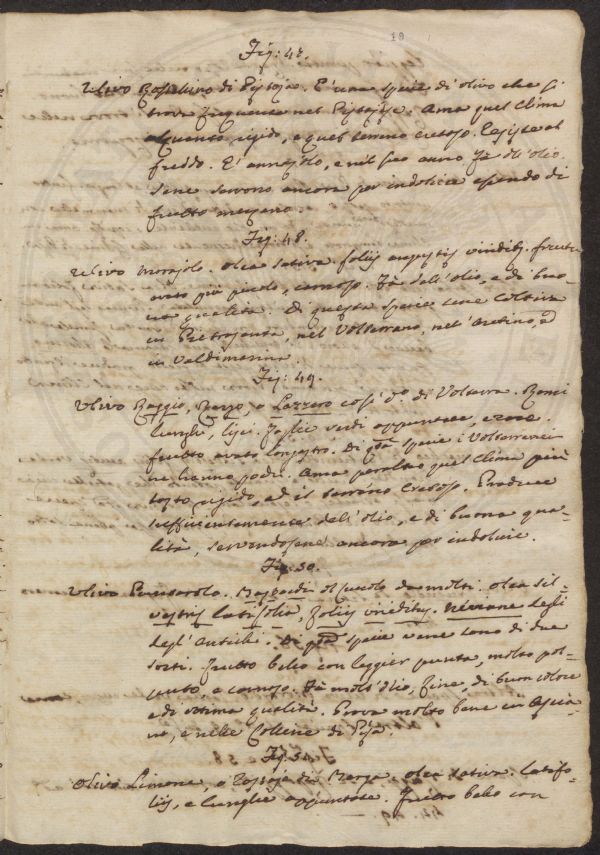 19
Fig: 47.
Ulivo Rossellino di Pistoja. È una specie di olivo che si
trova frequente nel Pistojese. Ama quel clima
alquanto rigido, e quel terreno cretoso. Resiste al
freddo. È annajolo, e nel suo anno fà dell'olio.
Sene servono ancora per indolcire essendo di
frutto mezano.
Fig: 48.
Ulivo Morajolo. Olea sativa folijs angustis viridib. Frutto
ovato più piccolo, carnoso. Fà dell'olio, e di buo=
na qualità. Di questa specie sene coltiva
in Pietrasanta, nel Volterrano, nel Aretino, e
in Valdimarina.
Fig: 49.
Ulivo Raggio, Razzo, o Lazzero così d.º di Volterra. Rami
lunghi, lisci. Foglie verdi appuntate, e rare.
Frutto ovato longastro. Di qta specie i Volterranei
ne hanno pochi. Ama peraltro quel clima più
tosto rigido, ed il terreno cretoso. Produce
sufficientemente dell'olio, e di buona qua=
lità, servendosene ancora per indolcire.
Fig: 50.
Ulivo da molti. Olea sil=
vestris latifolia, folijs viridibus. degli
degl'Antichi. Di qta specie vene sono di due
sorti. Frutto bello con leggier punta, molto pol=
puto, e carnoso. Fà molt'olio, fine, di buon colore
e di ottima qualità. Prova molto bene in Ascia=
no, e nelle Colline di Pisa.
Fig: 51.
Olivo Limone, o di Olea sativa latifo=
lijs, e lunghe appuntate. Frutto bello con